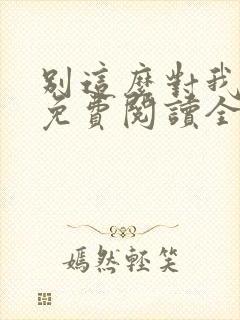 別這麼對我
免費閱讀全
嫣然輕笑